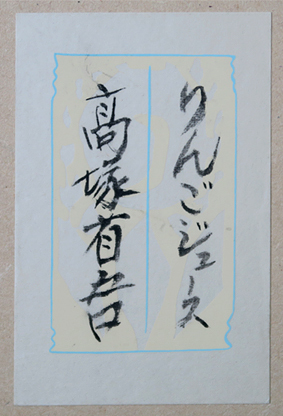 りんごジュース
髙塚有吾